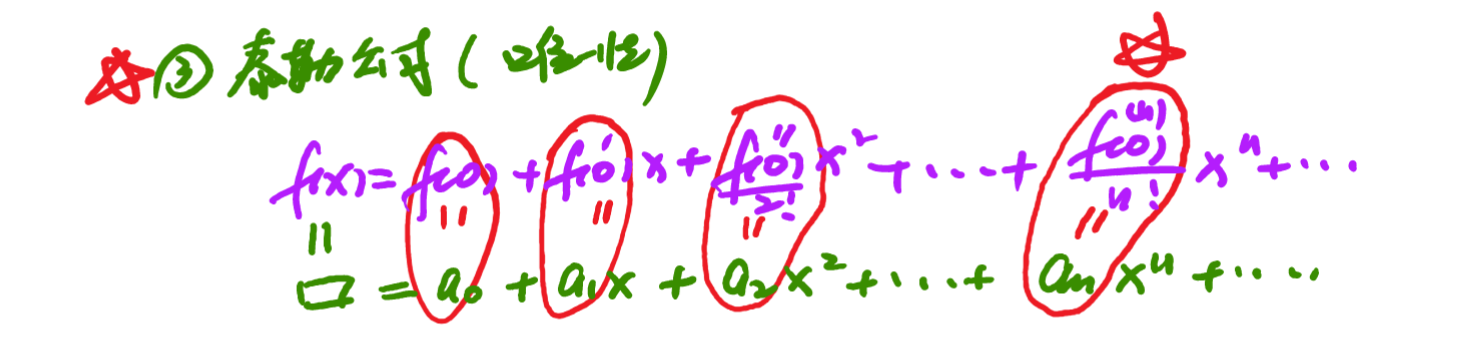 ③ 泰勒公式 (唯一性)
f(x) = f(0) + f'(0)x + f''(0)/2! x² + ... + f⁽ⁿ⁾(0)/n! xⁿ + ...
=  =  =  =  =
□ = a₀ + a₁x + a₂x² + ... + aₙxⁿ + ...